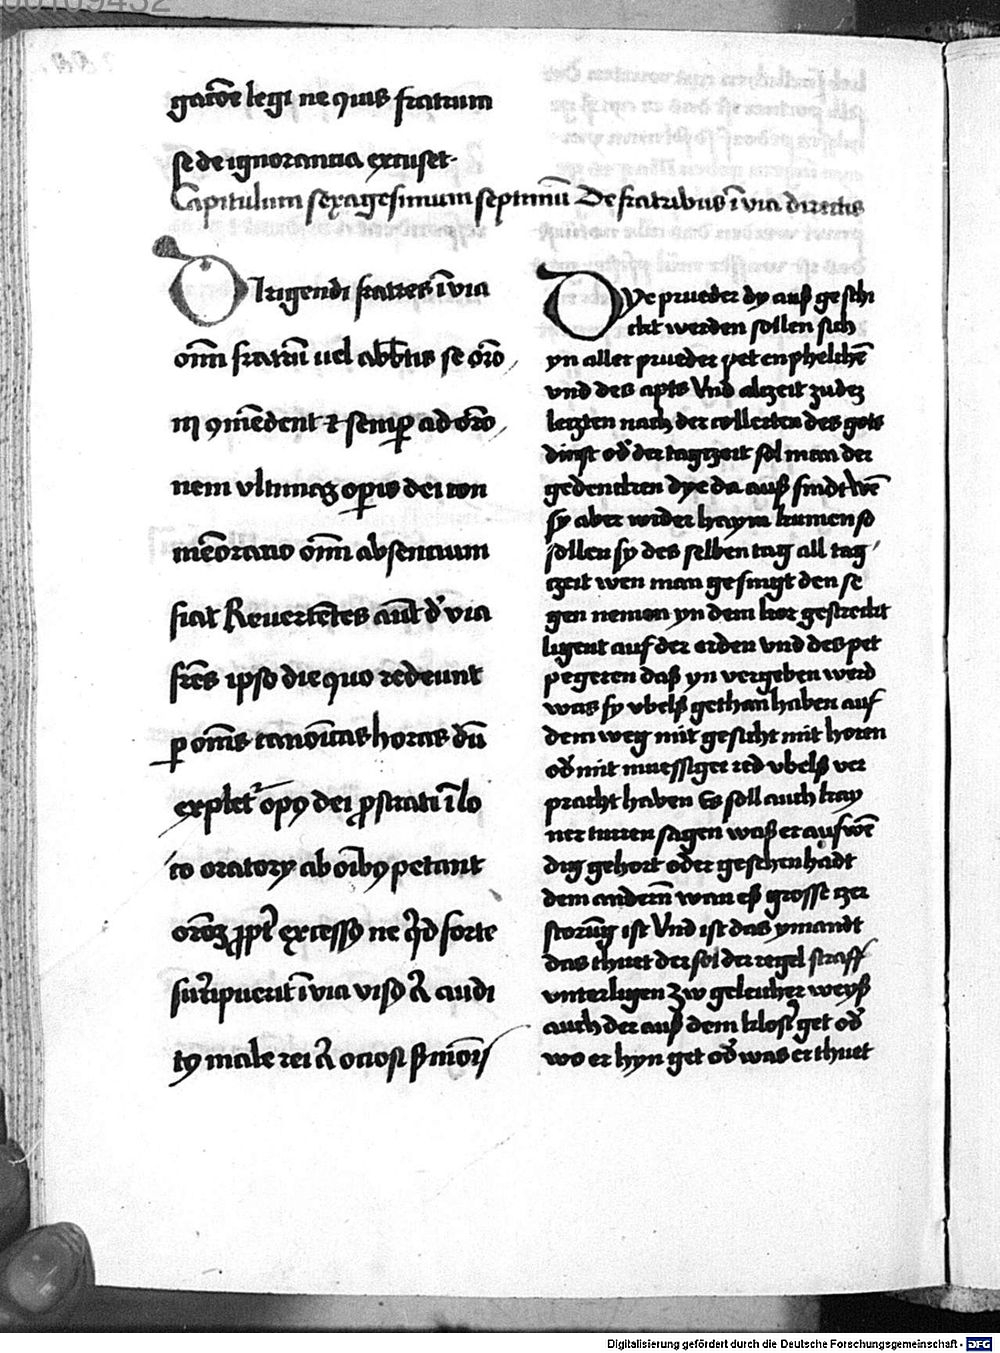 00109432
gacōe legi ne quis fratrum
se de ignorancia excuset·
Capitulum sexagesimum septimū De fratribus ī via directis
Dirigendi fratres ī via
om̄ fratrū uel abbtis se oro͞,
ni ꝯmēdent ⁊ semꝑ ad oro͞,
nem vltimaꝫ oꝑis dei com
mēoracio om̄ absencium
fiat Reuertētes aūt d' via
frēs ipso die quo redeunt
ꝑ om̄s canonīcas horas dū
explet᷑ opꝰ dei ꝓstrati ī lo
co oratorÿ ab oībꝰ petant
oroēꝫ ꝓpt̄ excessꝰ ne qͥd forte
surͥpuerit ī via visꝰ aͧ audi
tꝰ male rei aͧ ociosi ẜmōis
Dye prueder dy auß geschi
ckt werden sollen sich
yn aller prueder pet enphelchē
vnd des apts Vnd alczeit zu deꝫ
leczten nach der collecten des gots
dinst od' der tagczeit sol man der
gedencken dye da auß sindt Wē
sy aber wider haym kumen so
sollen sy des selben tag all tag
czeit wen man gesingt den se
gen nemen yn dem kor gestreckt
ligent auf der erden vnd des pet
pegeren daß yn vergeben werd
was sy vbelß gethan haben auf
dem weg mit gesicht mit horen
od' mit muessiger red vbelß ver
pracht haben Es soll auch kay
ner turren sagen waß er auswē
dig gehort oder geschen hadt
dem anderñ wan eß grosse czer
storūg ist Vnd ist das ymandt
das thuet der sol der regel straff
vnterligen Zw geleicher weyß
auch der auß dem klost' get od'
wo er hyn get od' was er thuet
Digitalisierung gefördert durch die Deutsche Forschungsgemeinschaft - DFG